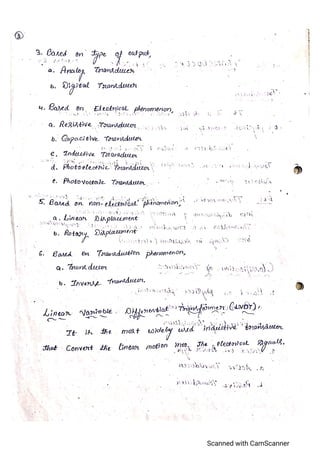 3
3. Based on type of output,
a. Analog Transducer
b. Digital Transducer
4. Based on Electrical phenomenon,
a. Resistive Transducer
b. Capacitive Transducer
c. Inductive Transducer
d. Photoelectric Transducer
e. Photovoltaic Transducer
5. Based on non-electrical phenomenon,
a. Linear Displacement
b. Rotary Displacement
6. Based on Transduction phenomenon,
a. Transducer
b. Inverse Transducer.
Linear Variable Differential Transformer: (LVDT),
It is the most widely used inductive transducer
that Convert the linear motion into the electrical signals.
Scanned with CamScanner